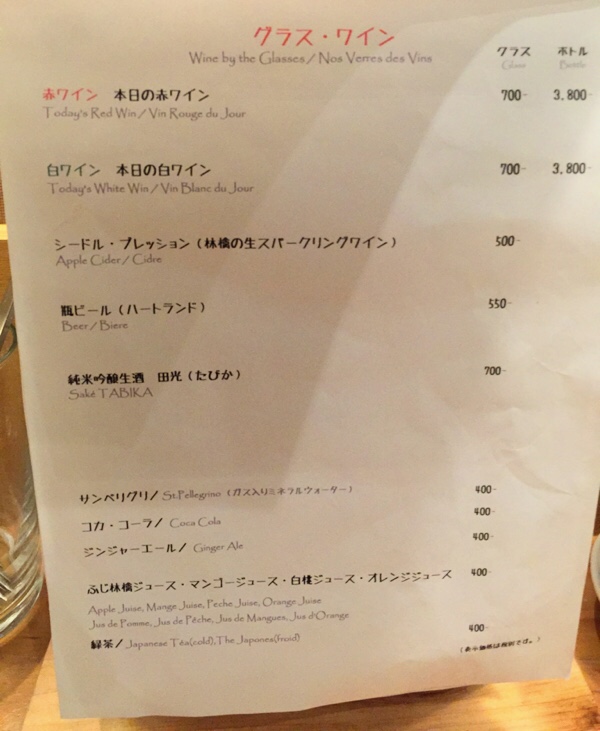 グラス・ワイン
Wine by the Glasses / Nos Verres des Vins
グラス ボトル
Glass Bottle
赤ワイン 本日の赤ワイン 700- 3,800-
Today's Red Win / Vin Rouge du Jour
白ワイン 本日の白ワイン 700- 3,800-
Today's White Win / Vin Blanc du Jour
シードル・プレッション（林檎の生スパークリングワイン） 500-
Apple Cider / Cidre
瓶ビール（ハートランド） 550-
Beer / Biere
純米吟醸生酒 田光（たびか） 700-
Saké TABIKA
サンペリグリ / St.Pellegrino（ガス入りミネラルウォーター） 400-
コカ・コーラ / Coca Cola 400-
ジンジャーエール / Ginger Ale 400-
ふじ林檎ジュース・マンゴージュース・白桃ジュース・オレンジジュース 400-
Apple Juise, Mange Juise, Peche Juise, Orange Juise
Jus de Pomme, Jus de Pêche, Jus de Mangues, Jus d'Orange
緑茶 / Japanese Téa(cold),The Japones(froid) 400-
（表示価格は税別です。）